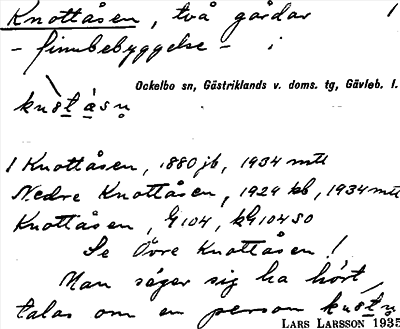 Knottåsen, två gårdar 1
- finnbebyggelse - i
Ockelbo sn, Gästriklands v. doms. tg, Gävleb. l.
1 Knottåsen, 1880 jb, 1934 mtl
Nedre Knottåsen, 1929 kb, 1934 mtl
Knottåsen, G104, kG104 SO
Se Övre Knottåsen!
Man säger sig ha hört
talas om en person
LARS LARSSON 1935